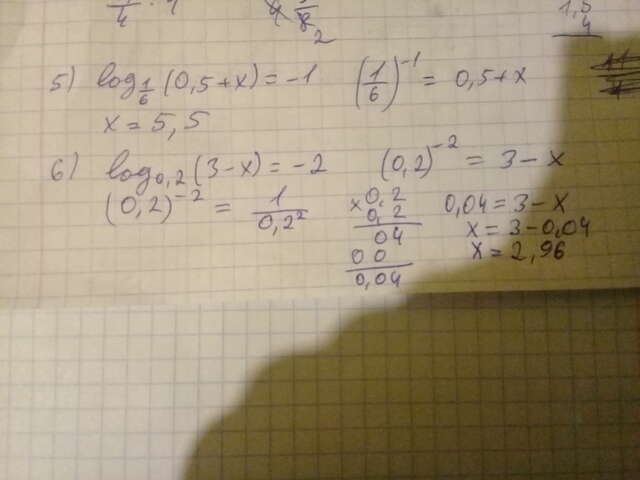 5) log_{1/6}(0,5+x)=-1    (1/6)^{-1} = 0,5+x
x = 5,5
6) log_{0,2}(3-x)=-2    (0,2)^{-2} = 3-x
(0,2)^{-2} = 1/0,2²
x 0,2
0,2
04
00
0,04
0,04 = 3-x
x = 3-0,04
x = 2,96
1,5
4